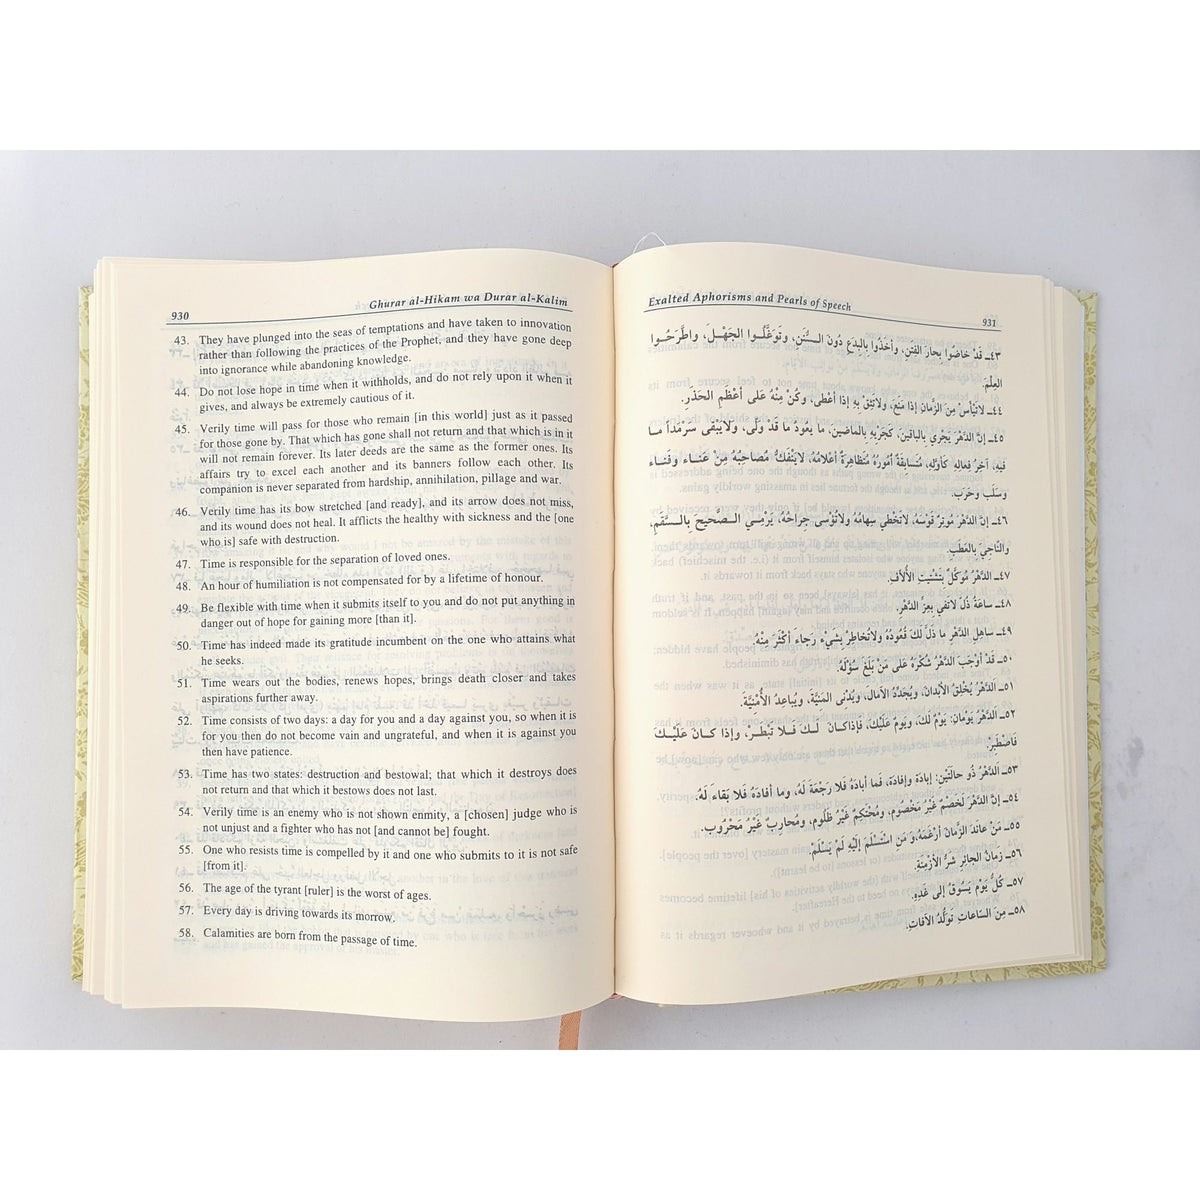 930
Ghurar al-Hikam wa Durar al-Kalim
43. They have plunged into the seas of temptations and have taken to innovation
rather than following the practices of the Prophet, and they have gone deep
into ignorance while abandoning knowledge.
44. Do not lose hope in time when it withholds, and do not rely upon it when it
gives, and always be extremely cautious of it.
45. Verily time will pass for those who remain [in this world] just as it passed
for those gone by. That which has gone shall not return and that which is in it
will not remain forever. Its later deeds are the same as the former ones. Its
affairs try to excel each another and its banners follow each other. Its
companion is never separated from hardship, annihilation, pillage and war.
46. Verily time has its bow stretched [and ready], and its arrow does not miss,
and its wound does not heal. It afflicts the healthy with sickness and the [one
who is] safe with destruction.
47. Time is responsible for the separation of loved ones.
48. An hour of humiliation is not compensated for by a lifetime of honour.
49. Be flexible with time when it submits itself to you and do not put anything in
danger out of hope for gaining more [than it].
50. Time has indeed made its gratitude incumbent on the one who attains what
he seeks.
51. Time wears out the bodies, renews hopes, brings death closer and takes
aspirations further away.
52. Time consists of two days: a day for you and a day against you, so when it is
for you then do not become vain and ungrateful, and when it is against you
then have patience.
53. Time has two states: destruction and bestowal; that which it destroys does
not return and that which it bestows does not last.
54. Verily time is an enemy who is not shown enmity, a [chosen] judge who is
not unjust and a fighter who has not [and cannot be] fought.
55. One who resists time is compelled by it and one who submits to it is not safe
[from it].
56. The age of the tyrant [ruler] is the worst of ages.
57. Every day is driving towards its morrow.
58. Calamities are born from the passage of time.
Exalted Aphorisms and Pearls of Speech
931
٤٣ـ قَدْ خاضُوا بِحارَ الفِتَنِ، وأخَذُوا بِالبِدَعِ دُونَ السُّنَنِ، وتَوَغَّلُوا الجَهْلَ، واطَّرَحُوا
العِلْمَ.
٤٤ـ لاتَيْأسْ مِنَ الزَّمانِ إذا مَنَعَ، ولاتَثِقْ بِهِ إذا أعْطى، وكُنْ مِنْهُ عَلى أعْظَمِ الحَذَرِ.
٤٥ـ إنَّ الدَّهْرَ يَجْري بِالباقينَ، كَجَرْيِهِ بِالماضينَ، ما يَعُودُ ما قَدْ وَلّى، ولايَبْقى سَرْمَداً ما
فيهِ، آخِرُ فِعالِهِ كَأوَّلِهِ، مُتَسابِقَةٌ اُمُورُهُ مُتَظاهِرَةٌ أعْلامُهُ، لايَنْفَكُّ مُصاحِبُهُ مِنْ عَناء وفَناء
وسَلَب وحَرَب.
٤٦ـ إنَّ الدَّهْرَ مُوتِرٌ قَوْسَهُ، لاتَخْطي سِهامُهُ ولاتُؤْسى جِراحُهُ، يَرْمِي الصَّحيحَ بِالسَّقَمِ،
والنّاجِيَ بِالعَطَبِ.
٤٧ـ الدَّهْرُ مُوَكَّلٌ بِتَشْتيتِ الاُلاّفِ.
٤٨ـ ساعَةُ ذُلّ لاتَفي بِعِزِّ الدَّهْرِ.
٤٩ـ ساهِلِ الدَّهْرَ ما ذَلَّ لَكَ قُعُودُهُ ولاتُخاطِرْ بِشَيْء رَجاءَ أكْثَرَ مِنْهُ.
٥٠ـ قَدْ أوْجَبَ الدَّهْرُ شُكْرَهُ عَلى مَنْ بَلَغَ سُؤْلَهُ.
٥١ـ الدَّهْرُ يُخْلِقُ الأبْدانَ، ويُجَدِّدُ الآمالَ، ويُدْنِي المَنِيَّةَ، ويُباعِدُ الاُمْنِيَّةَ.
٥٢ـ الدَّهْرُ يَوْمانِ: يَوْمٌ لَكَ، ويَوْمٌ عَلَيْكَ، فَإذا كانَ لَكَ فَلا تَبْطَرْ، وإذا كانَ عَلَيْكَ
فَاصْطَبِرْ.
٥٣ـ اَلدَّهْرُ ذُو حالَتَيْنِ: إبادَة وإفادَة، فَما أبادَهُ فَلا رَجْعَةَ لَهُ، وما أفادَهُ فَلا بَقاءَ لَهُ.
٥٤ـ إنَّ الدَّهْرَ لَخَصْمٌ غَيْرُ مَخْصُوم، ومُحْتَكِمٌ غَيْرُ ظَلُوم، ومُحارِبٌ غَيْرُ مَحْرُوب.
٥٥ـ مَنْ عانَدَ الزَّمانَ أرْغَمَهُ، ومَنِ اسْتَسْلَمَ إلَيْهِ لَمْ يَسْلَمْ.
٥٦ـ زَمانُ الجائِرِ شَرُّ الأزْمِنَةِ.
٥٧ـ كُلُّ يَوْم يَسُوقُ إلى غَدِهِ.
٥٨ـ مِنَ السّاعاتِ تَوَلُّدُ الآفاتِ.